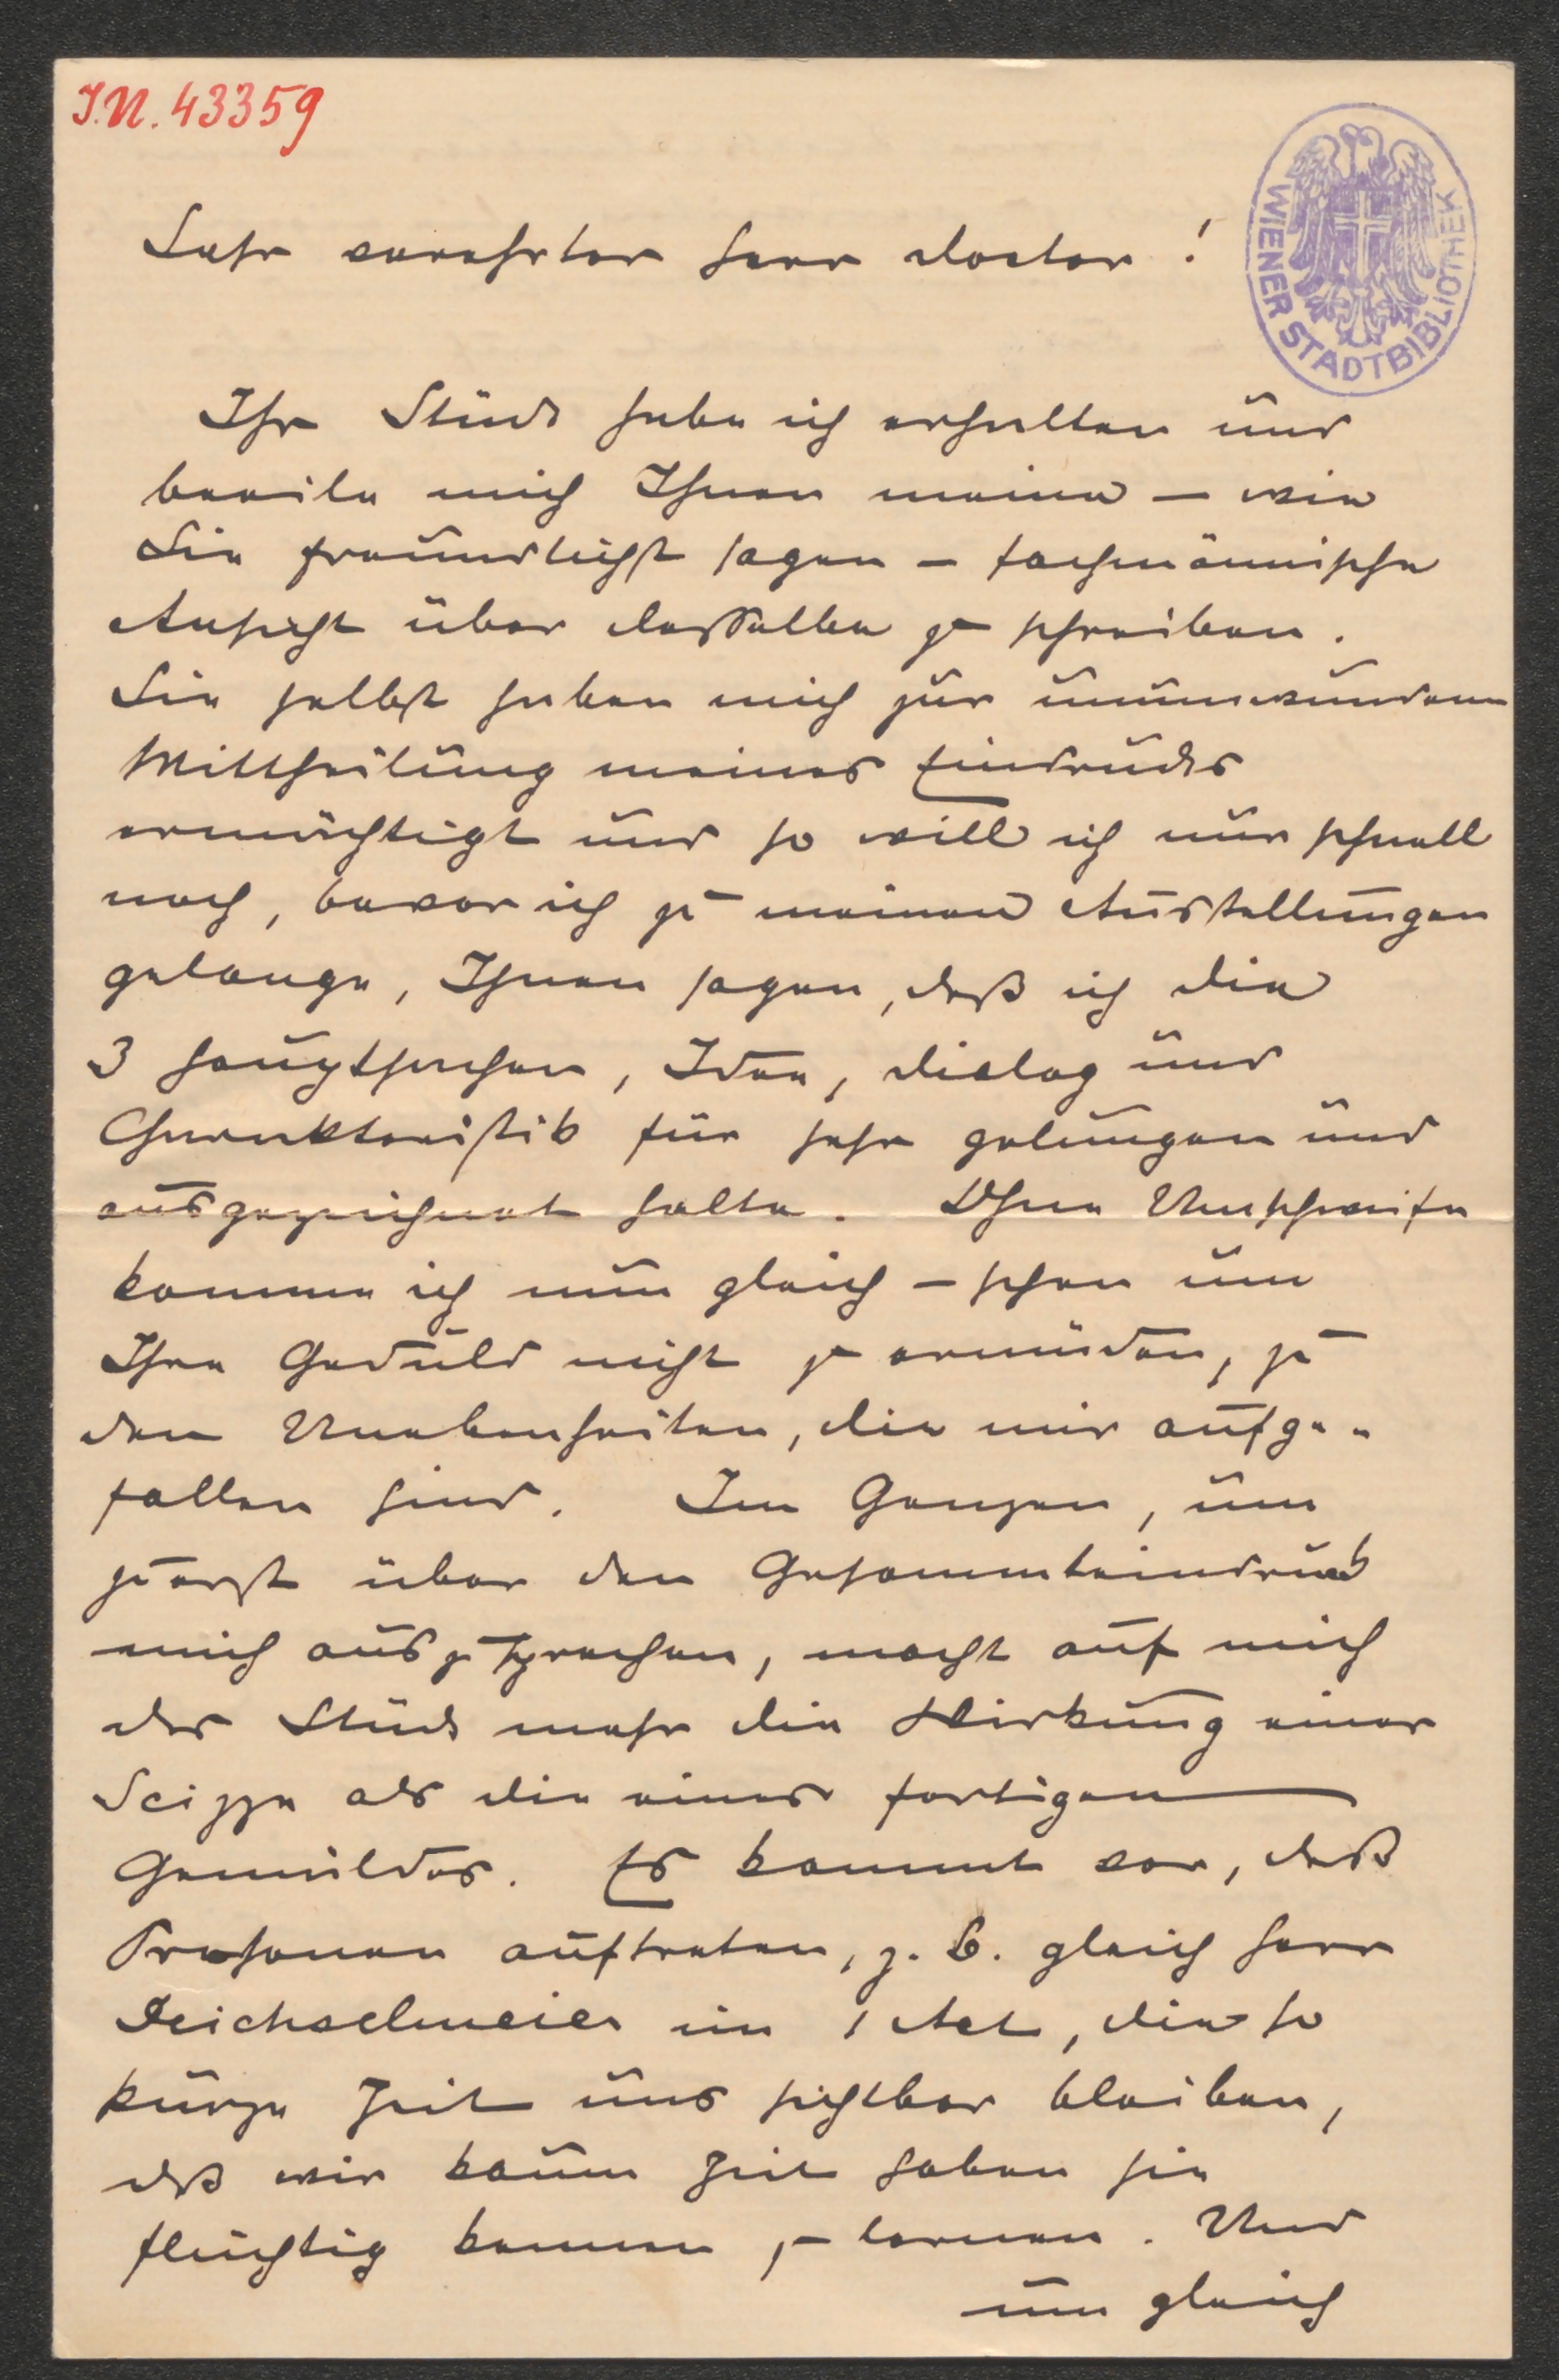 I.N. 43359
WIENER STADTBIBLIOTHEK
Sehr verehrter Herr Doctor!
Ihr Stück habe ich erhalten und
beeile mich Ihnen meine – wie
Sie freundlichst sagen – fachmännische
Ansicht über dasselbe zu schreiben.
Sie selbst haben mich zur unumwundenen
Mittheilung meines Eindrucks
ermächtigt und so will ich nur schnell
noch, bevor ich zu meinen Ausstellungen
gelange, Ihnen sagen, daß ich die
3 Hauptsachen, Idee, Dialog und
Charakteristik für sehr gelungen und
ausgezeichnet halte. Ohne Umschweife
komme ich nun gleich – schon um
Ihre Geduld nicht zu ermüden, zu
den Unebenheiten, die mir aufge-
fallen sind. Im Ganzen, um
zuerst über den Gesammteindruck
mich auszusprechen, macht auf mich
das Stück mehr die Wirkung einer
Scizze als die eines fertigen
Gemäldes. Es kommt vor, daß
Personen auftreten, z. B. gleich Herr
Deichselmeier im 1 Act, die so
kurze Zeit uns sichtbar bleiben,
daß wir kaum Zeit haben sie
flüchtig kennen zu lernen. Und
um gleich